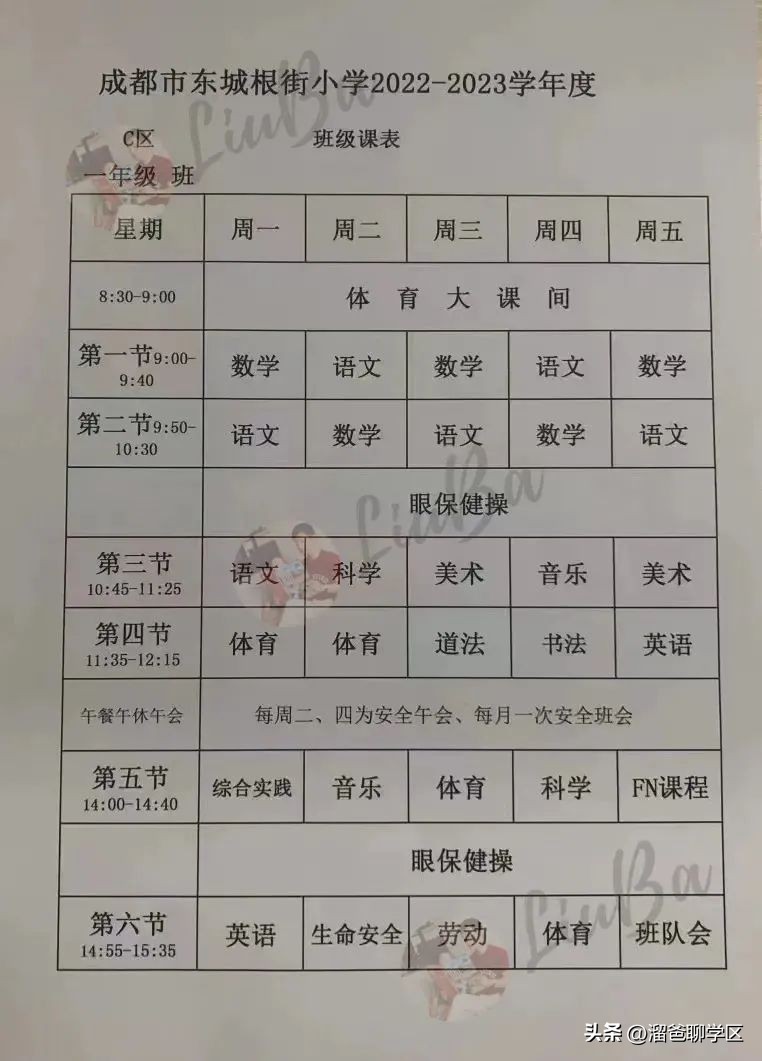 成都市东城根街小学2022-2023学年度
C区 班级课表
一年级 班
星期 周一 周二 周三 周四 周五
8:30-9:00 体 育 大 课 间
第一节9:00-9:40 数学 语文 数学 语文 数学
第二节9:50-10:30 语文 数学 语文 数学 语文
眼保健操
第三节 10:45-11:25 语文 科学 美术 音乐 美术
第四节 11:35-12:15 体育 体育 道法 书法 英语
午餐午休午会 每周二、四为安全午会、每月一次安全班会
第五节 14:00-14:40 综合实践 音乐 体育 科学 FN课程
眼保健操
第六节 14:55-15:35 英语 生命安全 劳动 体育 班队会
LiuBa
LiuBa
LiuBa
头条 @溜爸聊学区